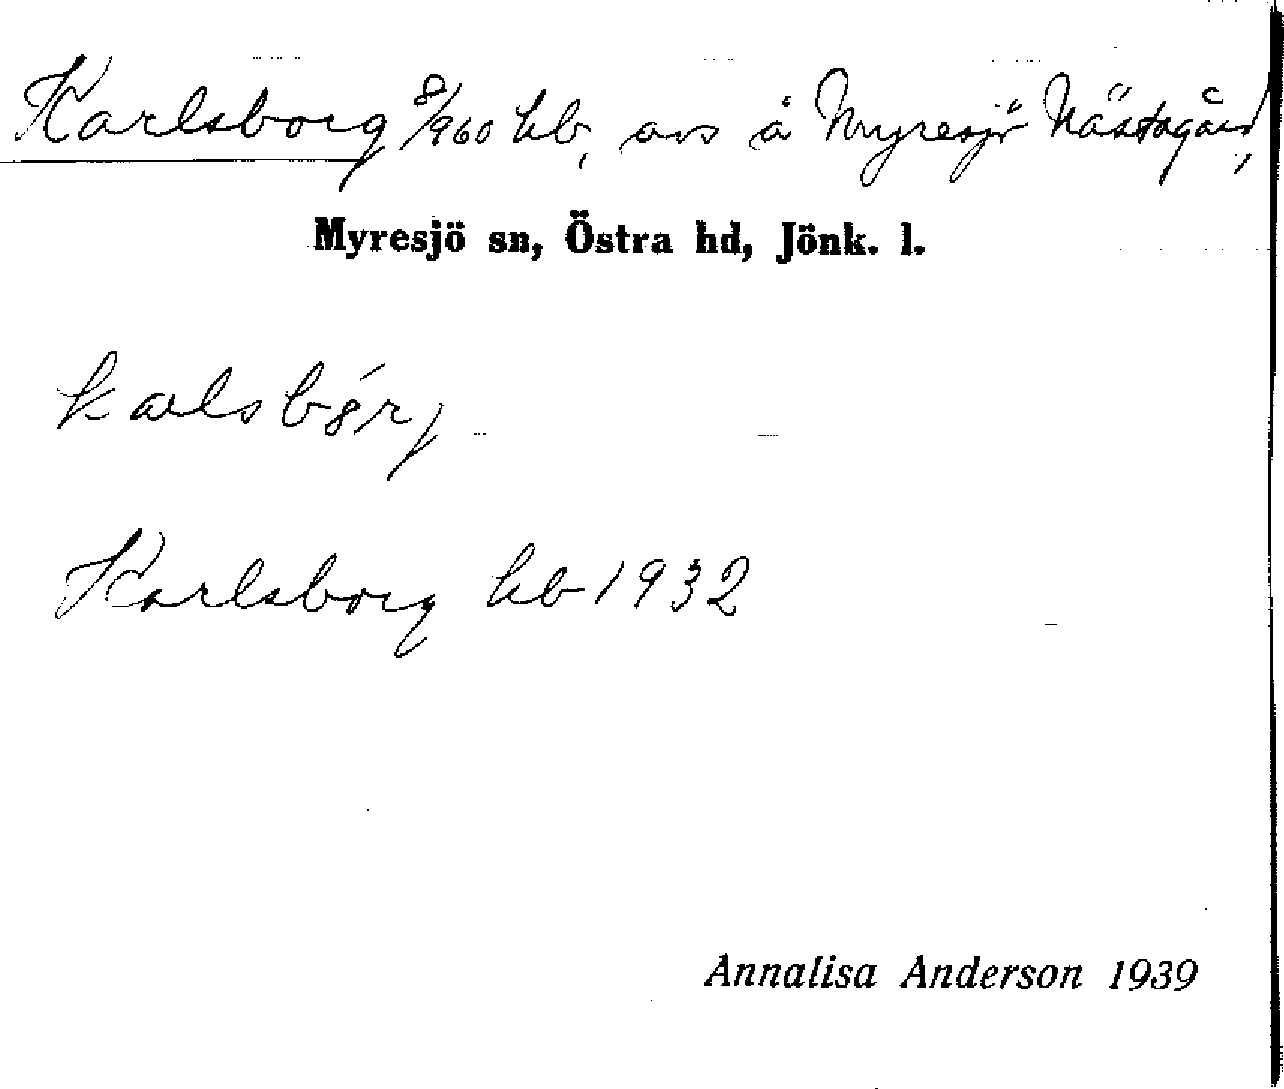 Karlsborg 8/960 hb, avs å Myresjö Nästagård,
Myresjö sn, Östra hd, Jönk. l.
kalsbórj
Karlsborg hb 1932
Annalisa Anderson 1939